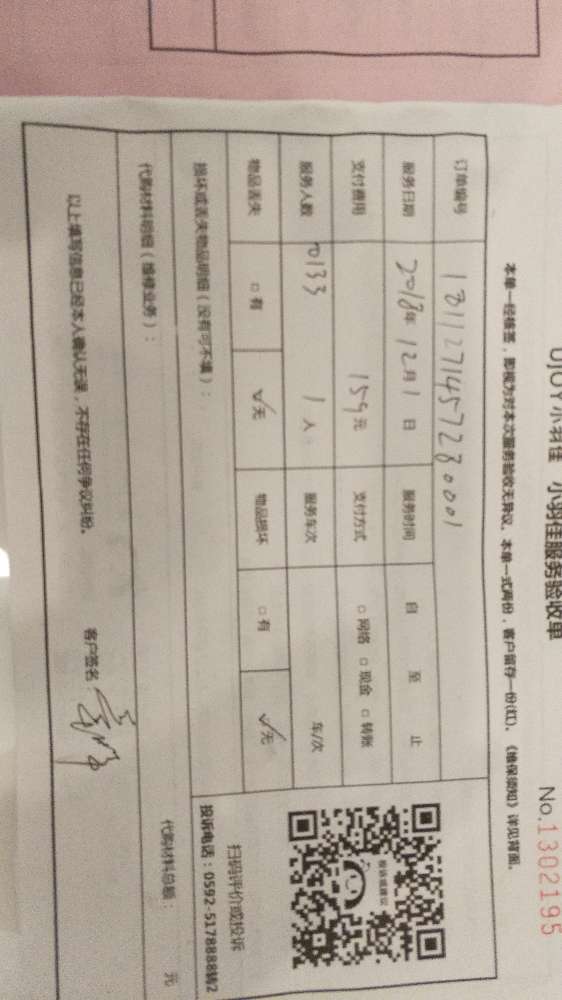 小羽佳 小羽佳服务验收单
No.1302195
本单一经核签，即视为对本次服务验收无异议。本单一式两份，客户留存一份(红)。《维保须知》详见背面。
订单编号
服务日期 2018年12月1日 服务时间 自 至 止
支付费用 159元 支付方式 □网络 □现金 □转账
服务人数 0133 1人 服务车次 车/次
物品丢失 □有 ☑无 物品损坏 □有 ☑无
损坏或丢失物品明细（没有可不填）：
投诉或建议
扫码评价或投诉
投诉电话：0592-5178888转2
代购材料明细（维修业务）：
代购材料总额： 元
以上填写信息已经本人确认无误，不存在任何争议纠纷。
客户签名：